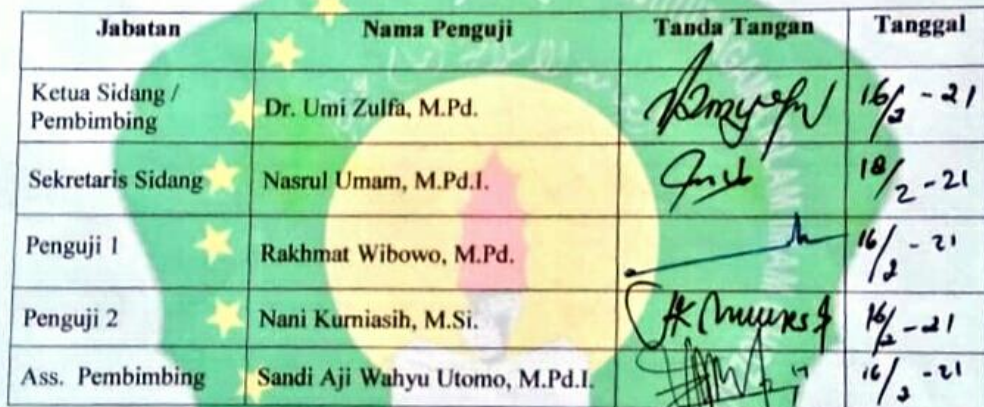 Jabatan Nama Penguji Tanda Tangan Tanggal
Ketua Sidang /
Pembimbing Dr. Umi Zulfa, M.Pd. 16/2 - 21
Sekretaris Sidang Nasrul Umam, M.Pd.I. 18/2 - 21
Penguji 1 Rakhmat Wibowo, M.Pd. 16/2 - 21
Penguji 2 Nani Kurniasih, M.Si. 16/2 - 21
Ass. Pembimbing Sandi Aji Wahyu Utomo, M.Pd.I. 16/2 - 21